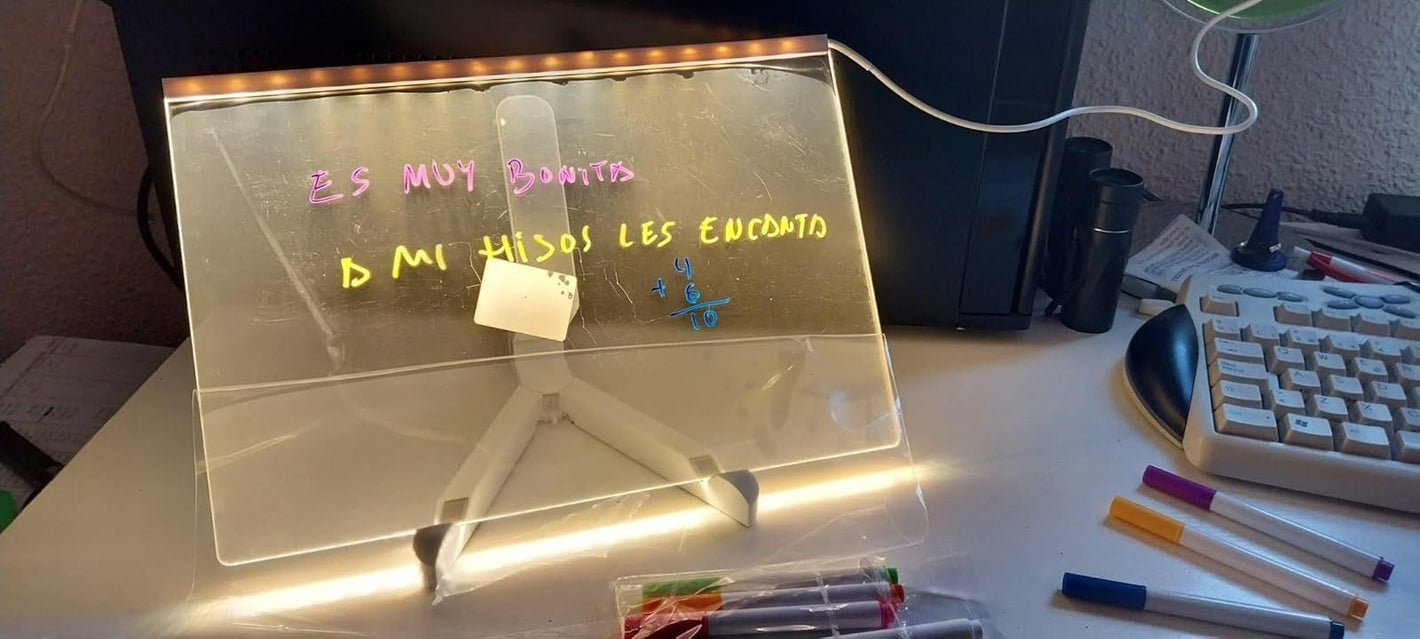 ES MUY BONITA
A MI HIJOS LES ENCANTA
4
+ 6
10